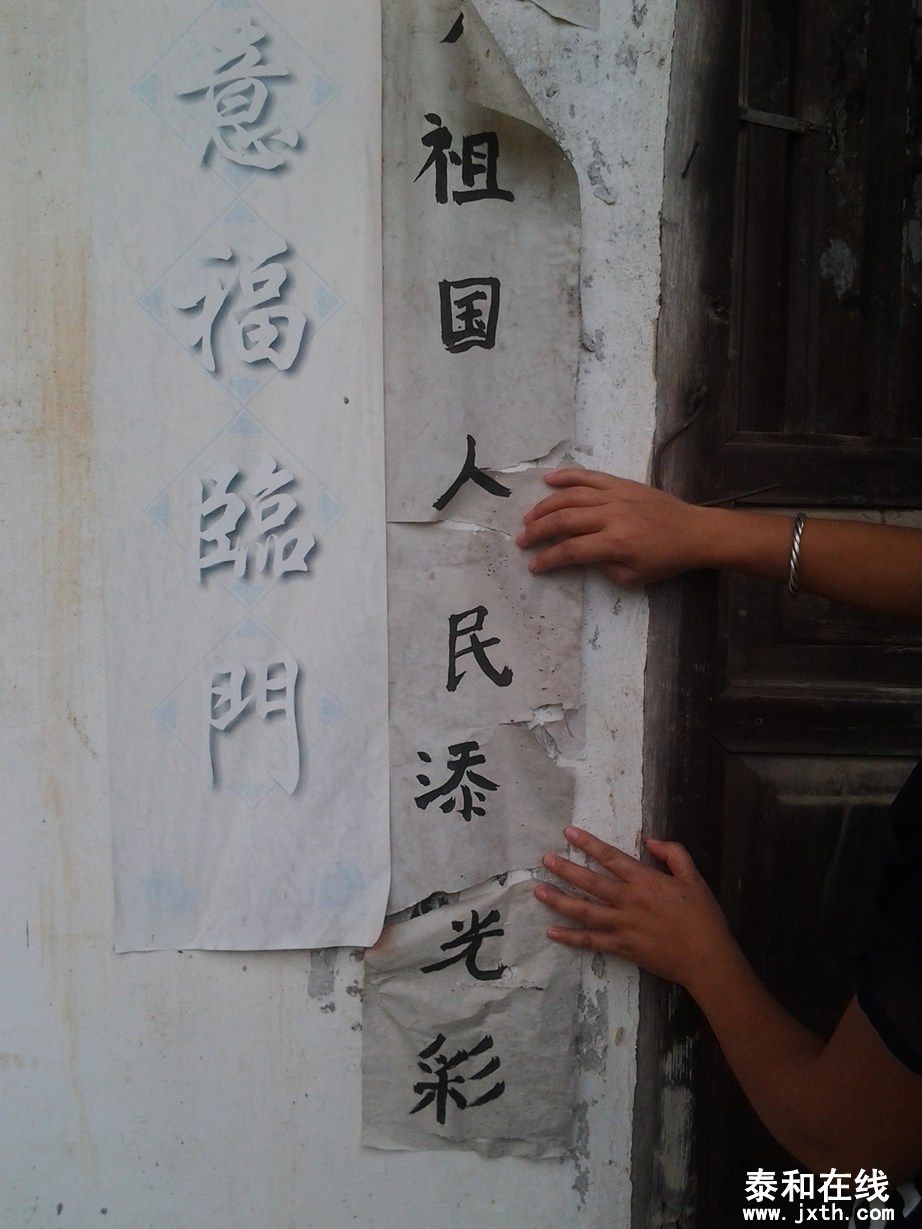 祖国人民添光彩
意福臨門
泰和在线
www.jxth.com